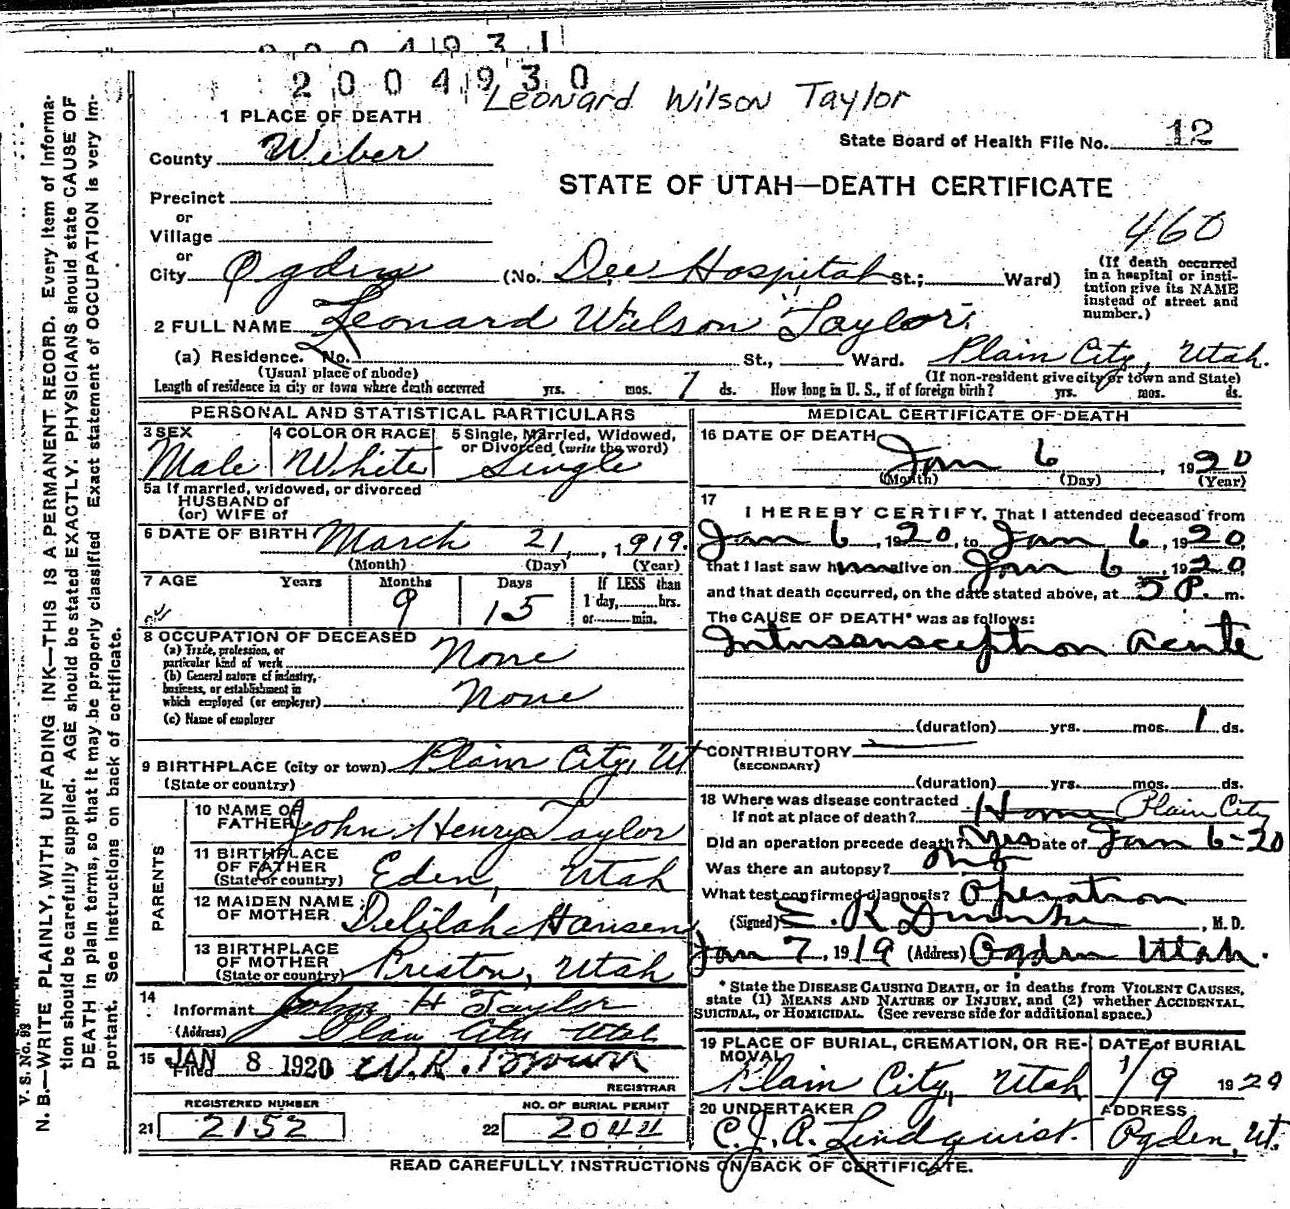 2004931
2004930
Leonard Wilson Taylor
1 PLACE OF DEATH
State Board of Health File No. 12
County Weber
STATE OF UTAH—DEATH CERTIFICATE
Precinct
or
Village
or
460
City Ogden (No. Dee Hospital St.; Ward)
(If death occurred in a hospital or institution give its NAME instead of street and number.)
2 FULL NAME Leonard Wilson Taylor
(a) Residence. No. St., Ward. Plain City, Utah.
(Usual place of abode) (If non-resident give city or town and State)
Length of residence in city or town where death occurred yrs. mos. 1 ds. How long in U. S., if of foreign birth? yrs. mos. ds.
PERSONAL AND STATISTICAL PARTICULARS
3 SEX 4 COLOR OR RACE 5 Single, Married, Widowed, or Divorced (write the word)
Male White Single
5a If married, widowed, or divorced
HUSBAND of
(or) WIFE of
6 DATE OF BIRTH March 21, 1919.
(Month) (Day) (Year)
7 AGE Years Months Days If LESS than
9 15 1 day, hrs.
or min.
8 OCCUPATION OF DECEASED
(a) Trade, profession, or particular kind of work None
(b) General nature of industry, business, or establishment in which employed (or employer) None
(c) Name of employer
9 BIRTHPLACE (city or town) Plain City, Ut
(State or country)
PARENTS
10 NAME OF FATHER John Henry Taylor
11 BIRTHPLACE OF FATHER (State or country) Eden, Utah
12 MAIDEN NAME OF MOTHER Delilah Hansen
13 BIRTHPLACE OF MOTHER (State or country) Preston, Utah
14 Informant John H Taylor
(Address) Plain City Utah
15 Filed JAN 8 1920 W.R. Brown
REGISTRAR
REGISTERED NUMBER NO. OF BURIAL PERMIT
21 2152 22 2044
MEDICAL CERTIFICATE OF DEATH
16 DATE OF DEATH
Jan 6, 1920
(Month) (Day) (Year)
17
I HEREBY CERTIFY, That I attended deceased from
Jan 6, 1920, to Jan 6, 1920,
that I last saw h alive on Jan 6, 1920,
and that death occurred, on the date stated above, at 5 P. m.
The CAUSE OF DEATH* was as follows:
Intussusception acute
(duration) yrs. mos. 1 ds.
CONTRIBUTORY
(SECONDARY)
(duration) yrs. mos. ds.
18 Where was disease contracted
If not at place of death? Home Plain City
Did an operation precede death? Yes Date of Jan 6-20
Was there an autopsy? No
What test confirmed diagnosis? Operation
(Signed) E. R. Dumke, M. D.
Jan 7, 1919 (Address) Ogden Utah.
* State the DISEASE CAUSING DEATH, or in deaths from VIOLENT CAUSES,
state (1) MEANS AND NATURE OF INJURY, and (2) whether ACCIDENTAL
SUICIDAL, or HOMICIDAL. (See reverse side for additional space.)
19 PLACE OF BURIAL, CREMATION, OR REMOVAL DATE of BURIAL
Plain City, Utah 1/9 1920
20 UNDERTAKER ADDRESS
C.J.A. Lindquist. Ogden, Ut.
READ CAREFULLY INSTRUCTIONS ON BACK OF CERTIFICATE.
V. S. No. 93
N. B.—WRITE PLAINLY, WITH UNFADING INK—THIS IS A PERMANENT RECORD. Every item of informa-
tion should be carefully supplied. AGE should be stated EXACTLY. PHYSICIANS should state CAUSE OF
DEATH in plain terms, so that it may be properly classified. Exact statement of OCCUPATION is very im-
portant. See instructions on back of certificate.